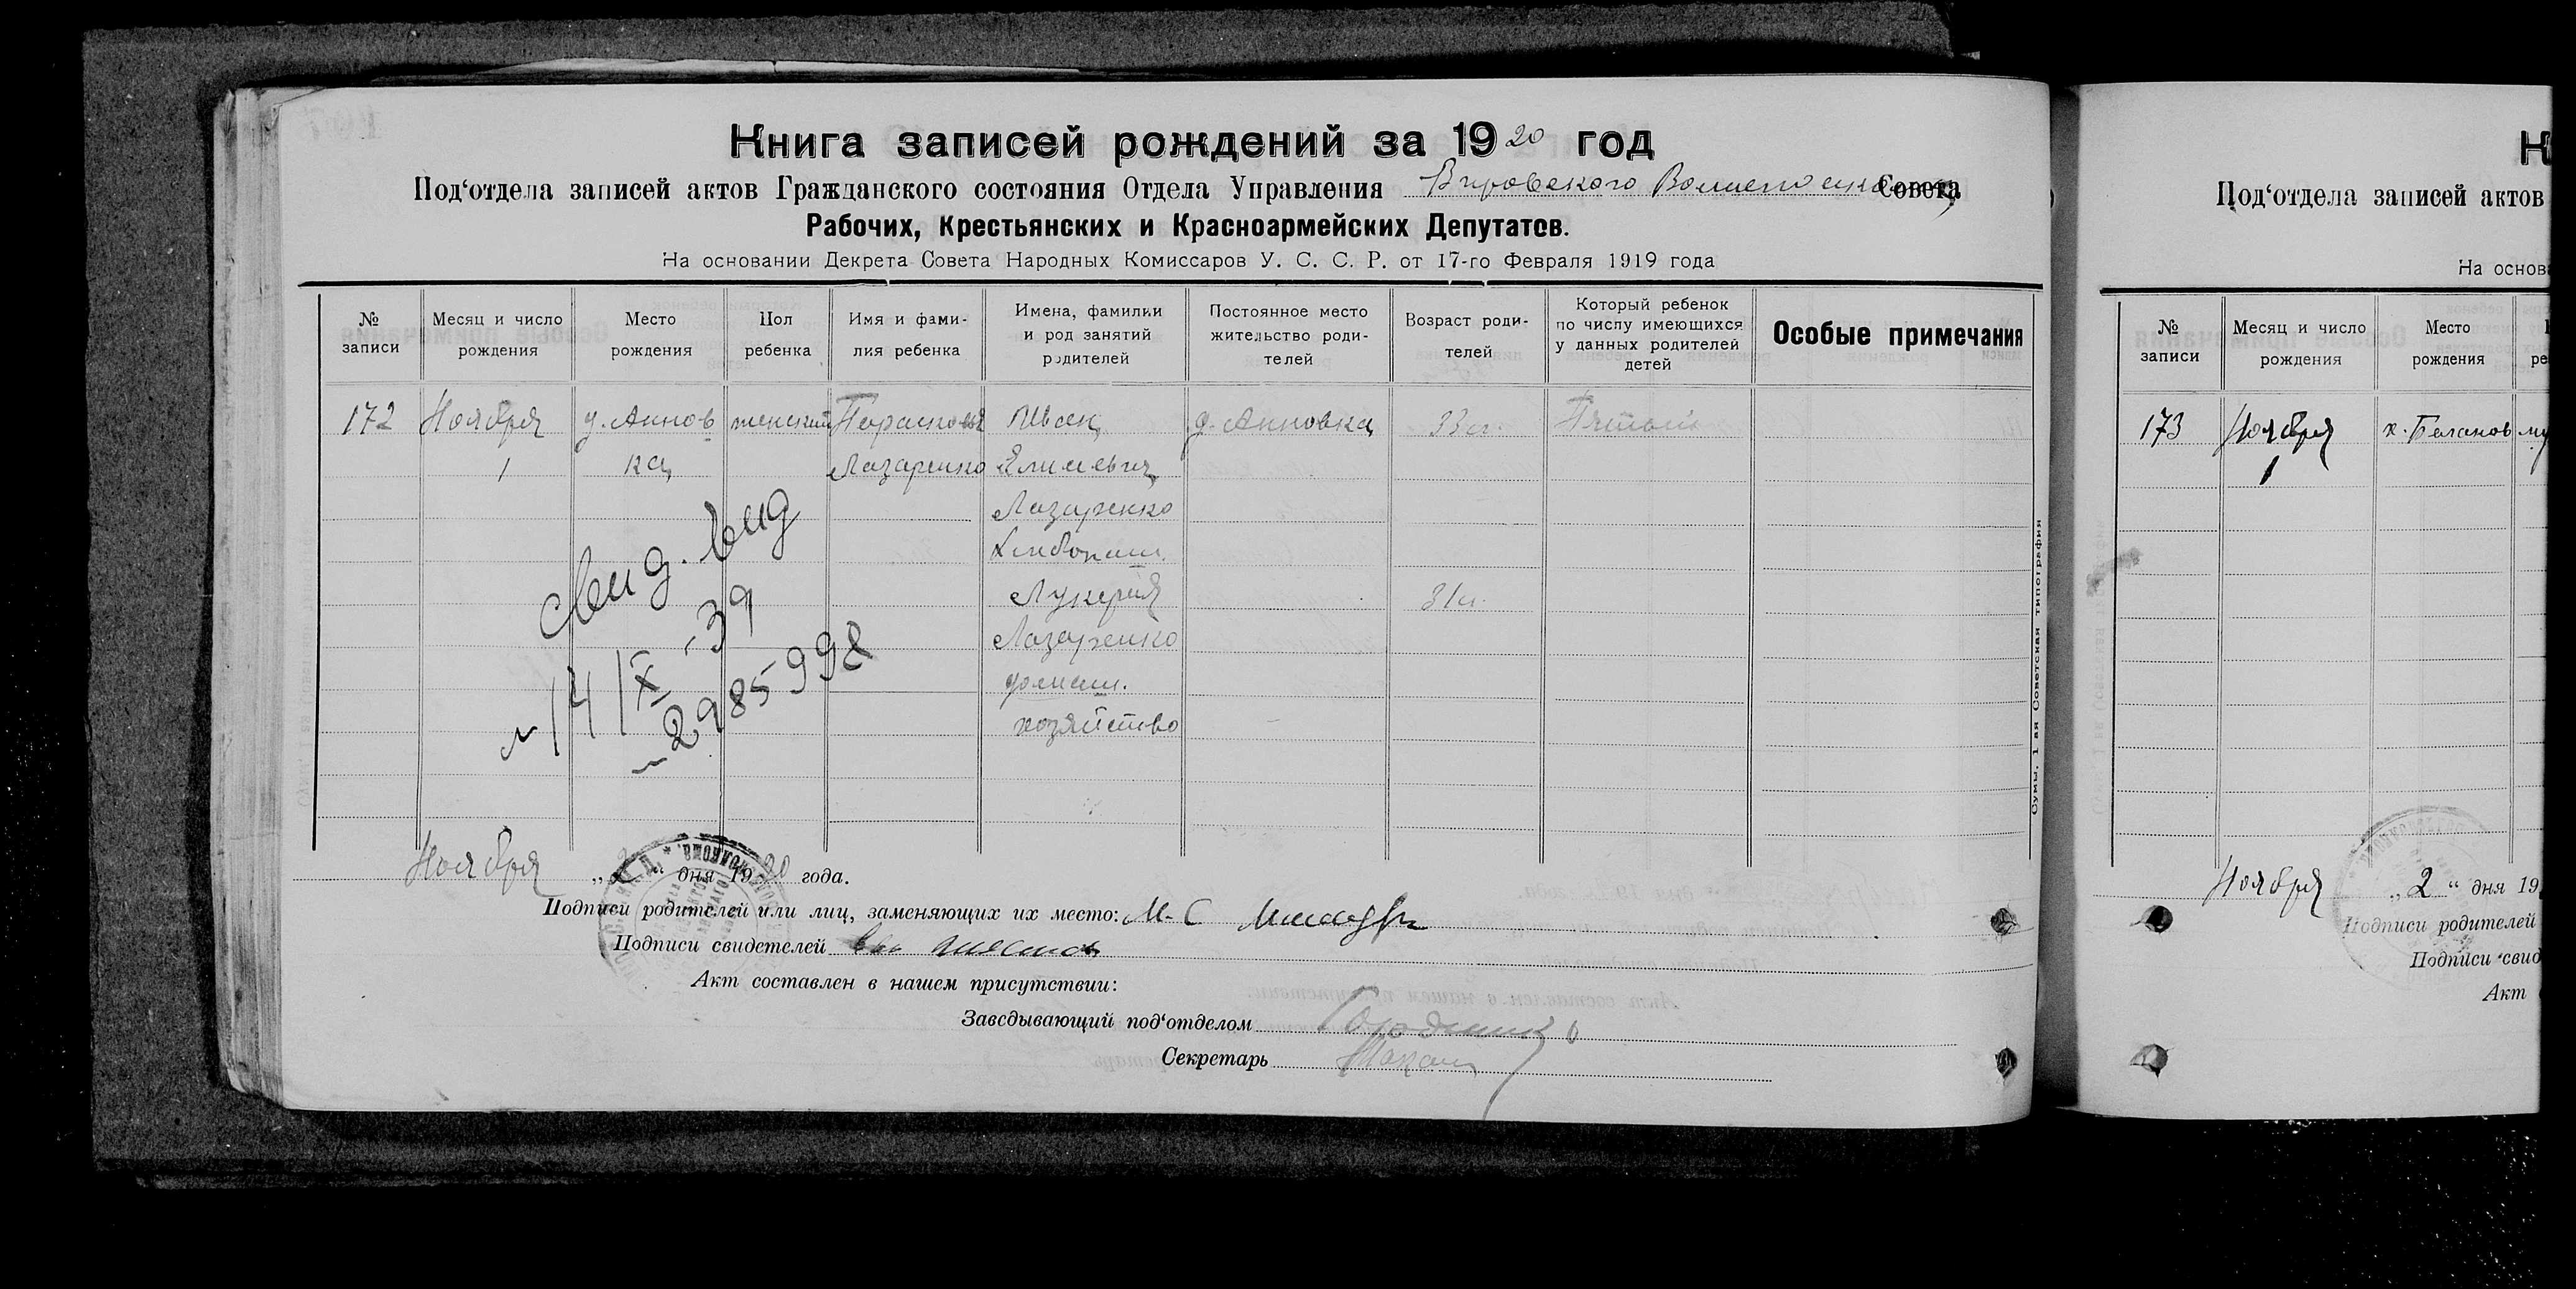 Книга записей рождений за 1920 год
Под‘отдела записей актов Гражданского состояния Отдела Управления Вировского Совета
Рабочих, Крестьянских и Красноармейских Депутатов.
На основании Декрета Совета Народных Комиссаров У. С. С. Р. от 17-го Февраля 1919 года
№ записи
Месяц и число рождения
Место рождения
Пол ребенка
Имя и фами-
лия ребенка
Имена, фамилии
и род занятий
родителей
Постоянное место
жительство роди-
телей
Возраст роди-
телей
Который ребенок
по числу имеющихся
у данных родителей
детей
Особые примечания
172
Ноября
1
д. Аннов
ка
женский
Парасковья
Лазаренко
Иван
Лазаренко
Хлебопаш.
Лукерия
Лазаренко
домаш.
хозяйство
д. Анновка
33 л.
31 л.
Пятый
Свид. выд
14/IX-39
2985998
Сумы, 1 ая Советская типография
Ноября „2“ дня 1920 года.
Подписи родителей или лиц, заменяющих их место: М. С.
Подписи свидетелей
Акт составлен в нашем присутствии:
Заведывающий под‘отделом
Секретарь
К
Под‘отдела записей актов
На основ
№ записи
Месяц и число
рождения
Место
рождения
173
Ноября
1
х. Беланов
Ноября „2“ дня 19
Подписи родителей
Подписи свид
Акт